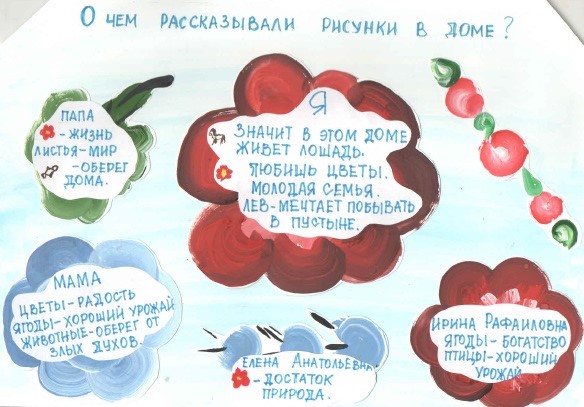 О чем рассказывали рисунки в доме?
Папа
- жизнь
листья - мир
- оберег
дома.
Я
Значит в этом доме
живет лошадь.
Любишь цветы.
Молодая семья.
Лев - мечтает побывать
в пустыне.
Мама
Цветы - радость
Ягоды - хороший урожай
Животные - оберег от
злых духов.
Елена Анатольевна
- достаток
природа.
Ирина Рафаиловна
Ягоды - богатство
Птицы - хороший
урожай